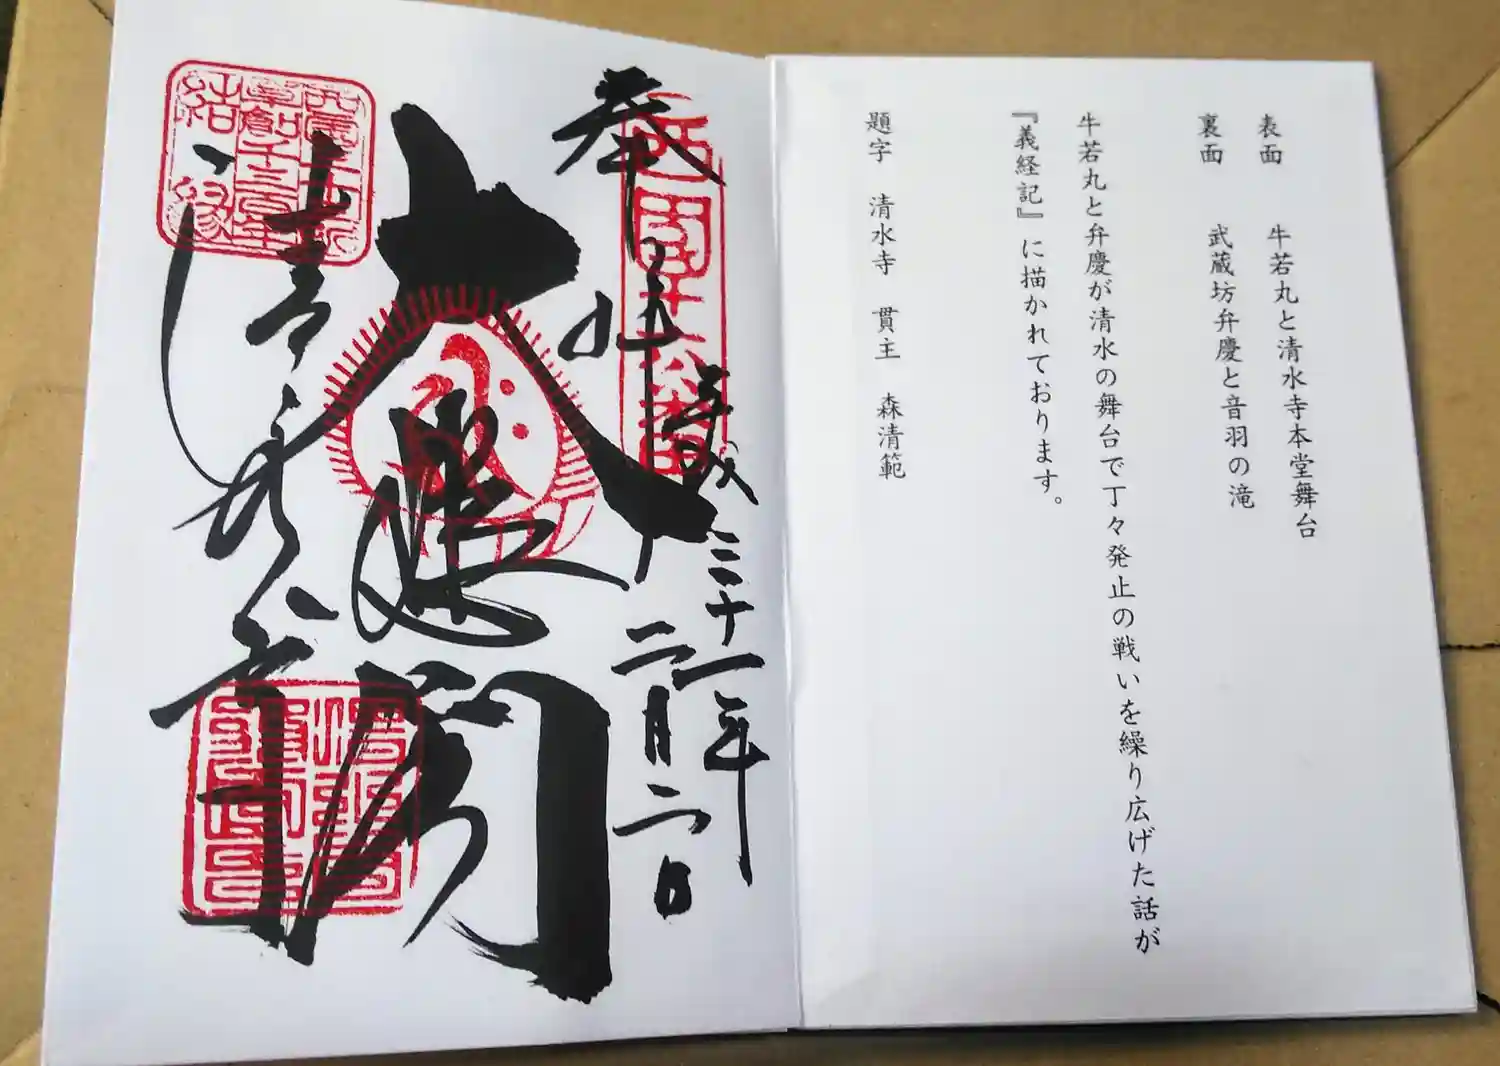 表面　牛若丸と清水寺本堂舞台
裏面　武蔵坊弁慶と音羽の滝
牛若丸と弁慶が清水の舞台で丁々発止の戦いを繰り広げた話が
『義経記』に描かれております。
題字　清水寺　貫主　森清範
奉拝
平成三十一年
二月二日
大悲閣
清水寺
西国十六番
西国三十三所
草創千三百年
結縁